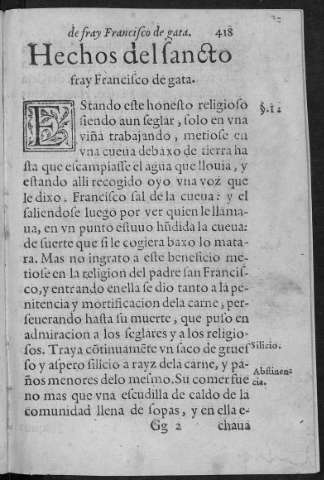 de fray Francisco de gata. 418
Hechos del sancto
fray Francisco de gata.
EStando este honesto religioso §.1.
siendo aun seglar, solo en vna
viña trabajando, metiose en
vna cueua debaxo de tierra ha
sta que escampiasse el agua que llouia, y
estando alli recogido oyo vna voz que
le dixo. Francisco sal de la cueua: y el
saliendose luego por ver quien le llama-
ua, en vn punto estuuo hũdida la cueua:
de suerte que si le cogiera baxo lo mata-
ra. Mas no ingrato a este beneficio me-
tiose en la religion del padre san Francis-
co, y entrando en ella se dio tanto a la pe-
nitencia y mortificacion dela carne, per-
seuerando hasta su muerte, que puso en
admiracion a los seglares y a los religio-
sos. Traya cõtinuamẽte vn saco de grues Silicio.
so y aspero silicio a rayz dela carne, y pa-
ños menores delo mesmo. Su comer fue Abstinen-
no mas que vna escudilla de caldo de la cia.
comunidad llena de sopas, y en ella e-
Gg 2 chaua